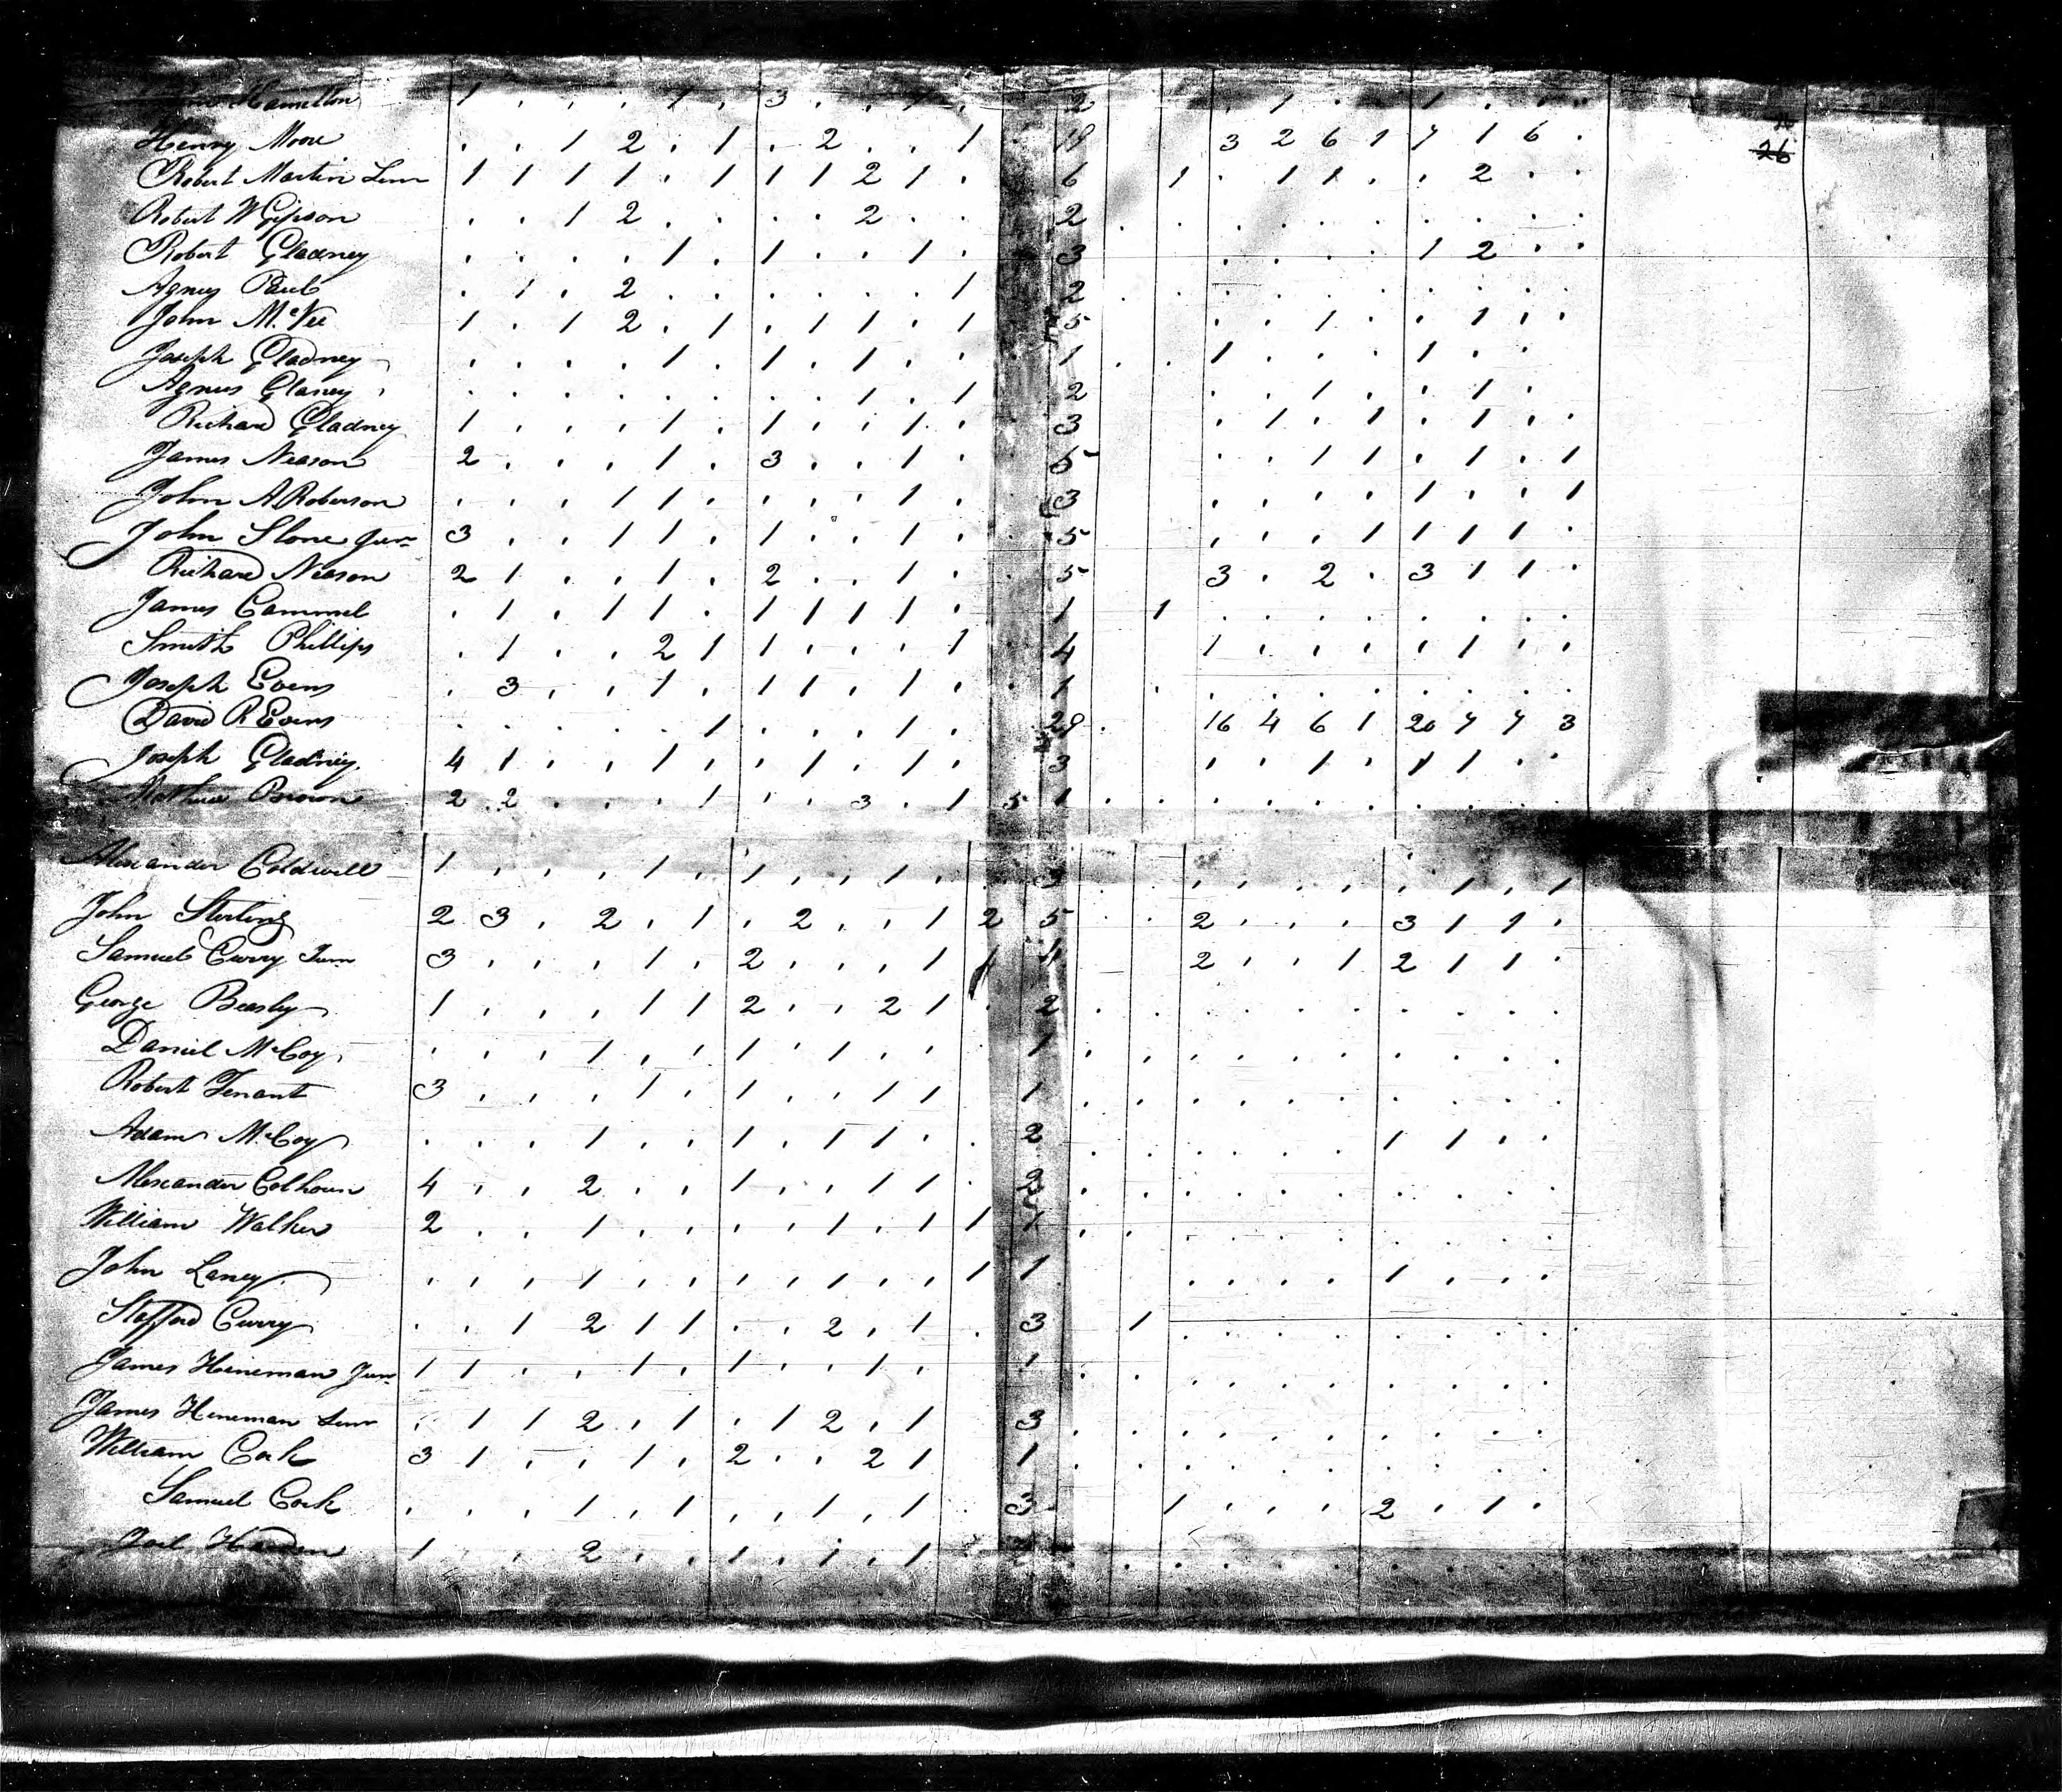 Hamelton 1 . . . . 1 . 3 . . 1 . 2 . 1 . . 1 . . .
Henry Moore . . 1 2 . 1 . 2 . . 1 . 19 3 2 6 1 7 1 6 . 26
Robert Martin Senr 1 1 1 1 . 1 1 1 2 1 . 6 1 . 1 1 . . 2 . .
Robert W Gipson . . 1 2 . . . . 2 . . 2 . . . . . . . . .
Robert Gladney . . . . 1 . 1 . . 1 . 3 . . . . 1 2 . .
Agnes Paul . 1 . 2 . . . . . . 1 2 . . . . . . . . .
John McVee 1 . 1 2 . 1 . 1 1 . 1 5 . . 1 . . 1 . .
Joseph Gladney . . . . 1 . 1 . 1 . . 1 . . 1 . . . 1 . . .
Agnes Glaney . . . . . . . . 1 . 1 2 . . 1 . . 1 . .
Richard Gladney 1 . . . 1 . 1 . . 1 . 3 . 1 . 1 . 1 . .
James Neason 2 . . . 1 . 3 . . 1 . 5 . . 1 1 . 1 . 1
John A Roberson . . . 1 1 . . . . 1 . 3 . . . . 1 . . 1
John Slone Junr 3 . . 1 1 . 1 . . 1 . 5 . . . 1 1 1 1 .
Richard Neason 2 1 . . 1 . 2 . . 1 . 5 3 . 2 . 3 1 1 .
James Cammel . 1 . 1 1 . 1 1 1 1 . 1 1 . . . . . . . .
Smith Phillips . 1 . . 2 1 1 . . . 1 4 1 . . . . 1 . .
Joseph Evens . 3 . . 1 . 1 1 . 1 . . 1 . . . . . . . . .
David R Evens . . . . . 1 . . . 1 . 28 . 16 4 6 1 20 7 7 3
Joseph Gladney. 4 1 . . 1 . . 1 . 1 . 3 . . 1 . 1 1 . .
Brown 2 2 . . . 1 . . 3 . 1 5 1 . . . . . . . . . .
Alexander Coldwell 1 . . . 1 . 1 . . 1 . . 3 . . . . . 1 . 1
John Sterling 2 3 . 2 . 1 . 2 . . 1 2 5 . . 2 . . . 3 1 1 .
Samuel Curry Junr 3 . . . 1 . 2 . . . 1 1 4 2 . . 1 2 1 1 .
George Beasley 1 . . . 1 1 2 . . 2 1 . 2 . . . . . . . . . .
Daniel McCoy . . . 1 . . 1 . 1 . . 1 . . . . . . . . . .
Robert Tenant 3 . . . 1 . 1 . . 1 1 1 . . . . . . . . . .
Adam McCoy . . . 1 . . 1 . 1 1 . . 2 . . . . . . 1 1 . .
Alexander Colhoun 4 . . 2 . . 1 . . 1 1 . 2 . . . . . . . . . .
William Walker 2 . . 1 . . . . 1 . 1 1 . . . . . . . . . .
John Laney . . . 1 . . . . 1 . . 1 1 . . . . 1 . . .
Stafford Curry . . 1 2 1 1 . . 2 . 1 . 3 1 . . . . . . . .
James Heineman Junr 1 1 . . 1 . 1 . . 1 . 1 . . . . . . . .
James Heneman Senr . 1 1 2 . 1 . 1 2 . 1 3 . . . . . . . . . .
William Cork 3 1 . . 1 . 2 . . 2 1 1 . . . . . . . . . .
Samuel Cork . . . 1 . 1 . . 1 . 1 . 3 1 . . . 2 . 1 .
1 . . 2 . . 1 . 1 . 1 . . . . . . . . . .